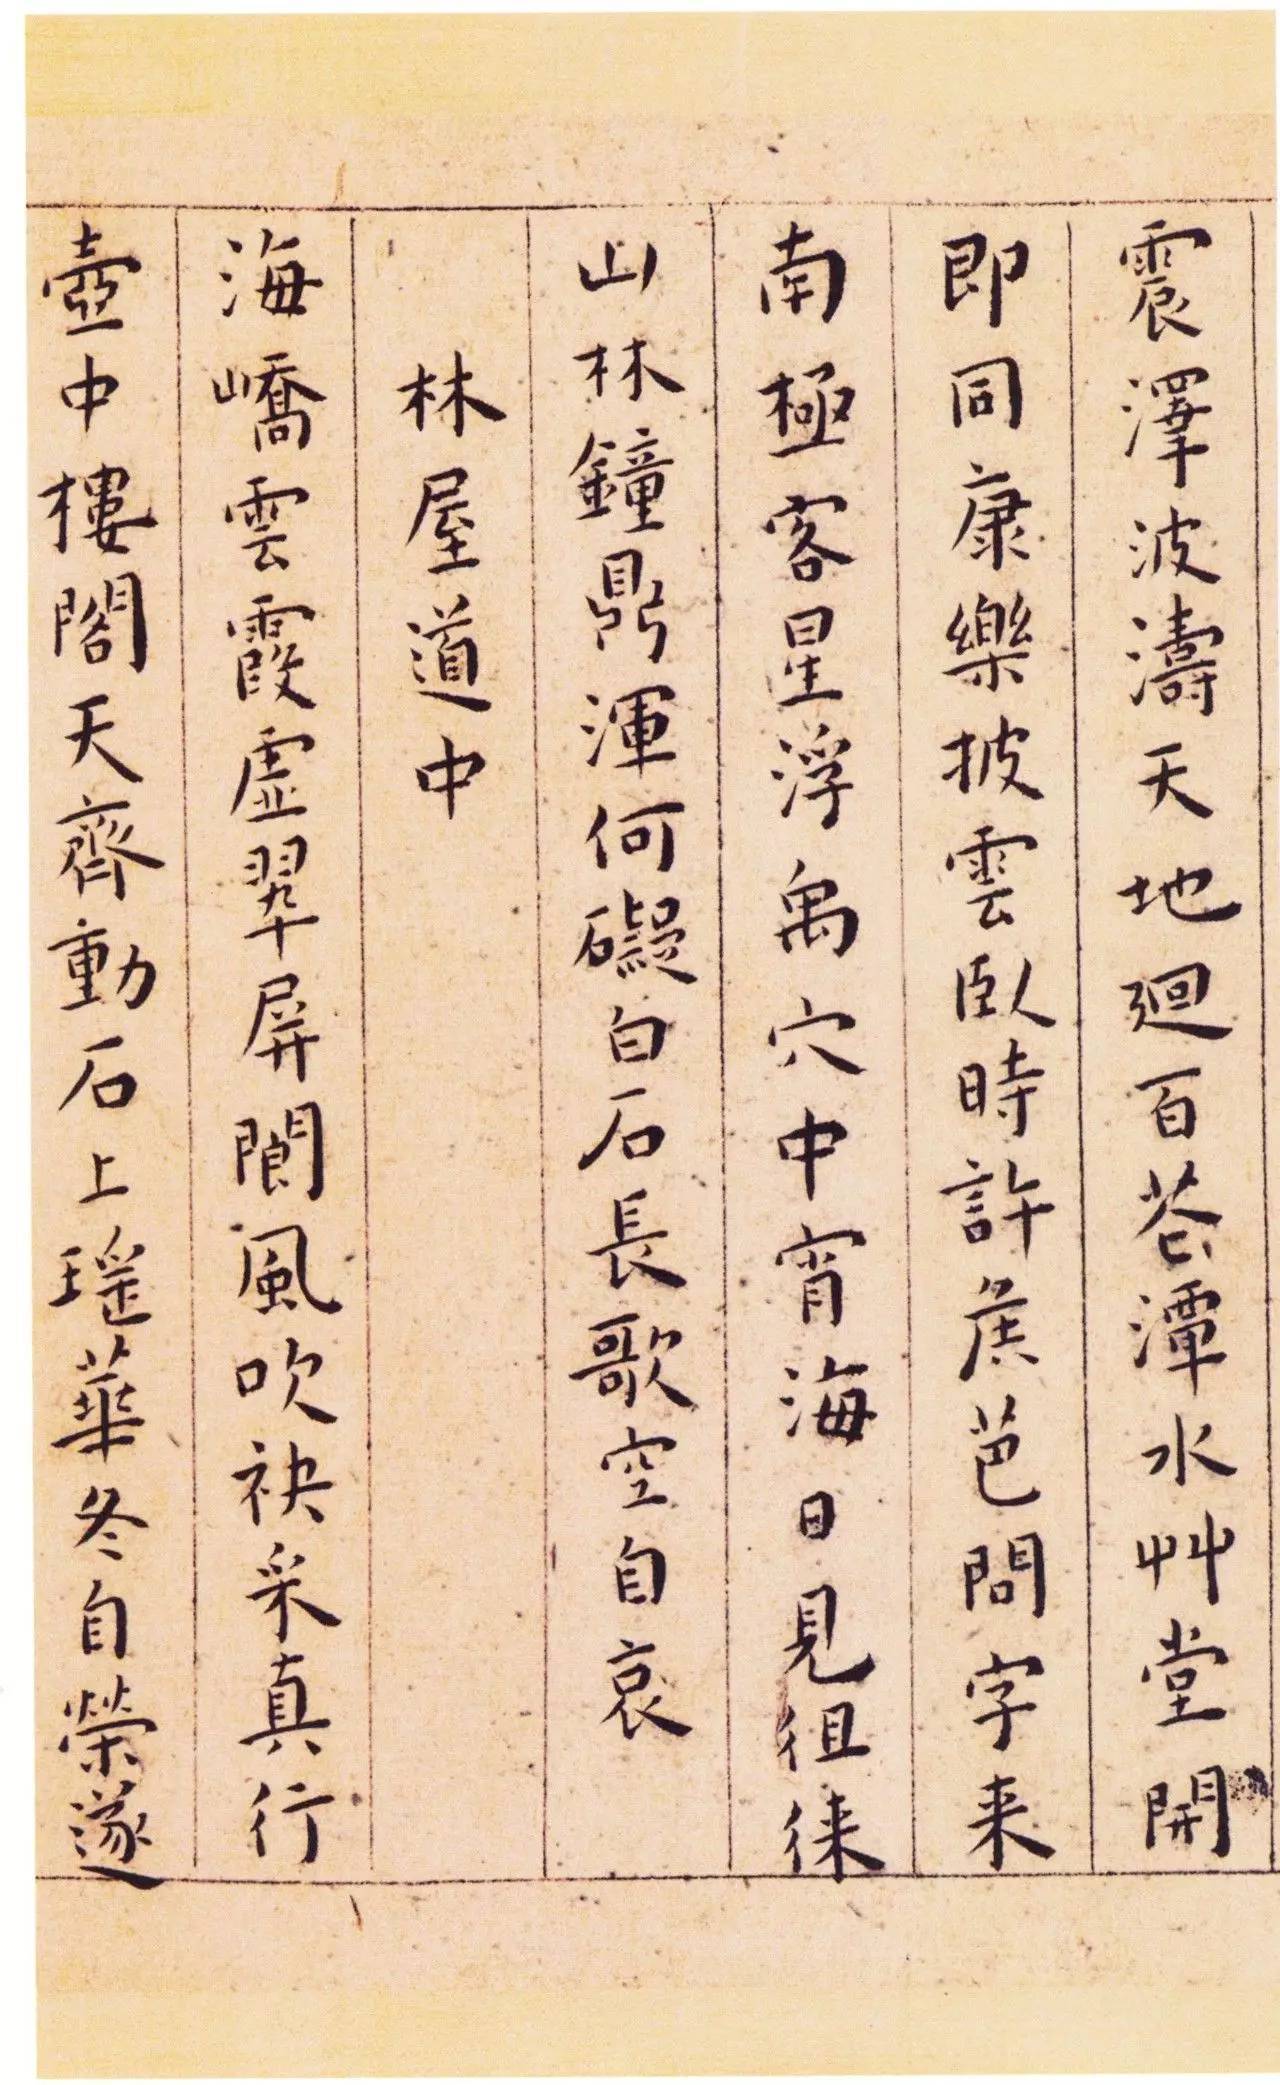 震澤波濤天地迴百花潭水艸堂開
即同康樂披雲臥時許侯芭問字来
南極客星浮禹穴中宵海日見徂徠
山林鐘鼎渾何礙白石長歌空自哀
林屋道中
海嶠雲霞虛翠屏閬風吹袂采真行
壺中樓閣天齊動石上瑤華冬自榮遂